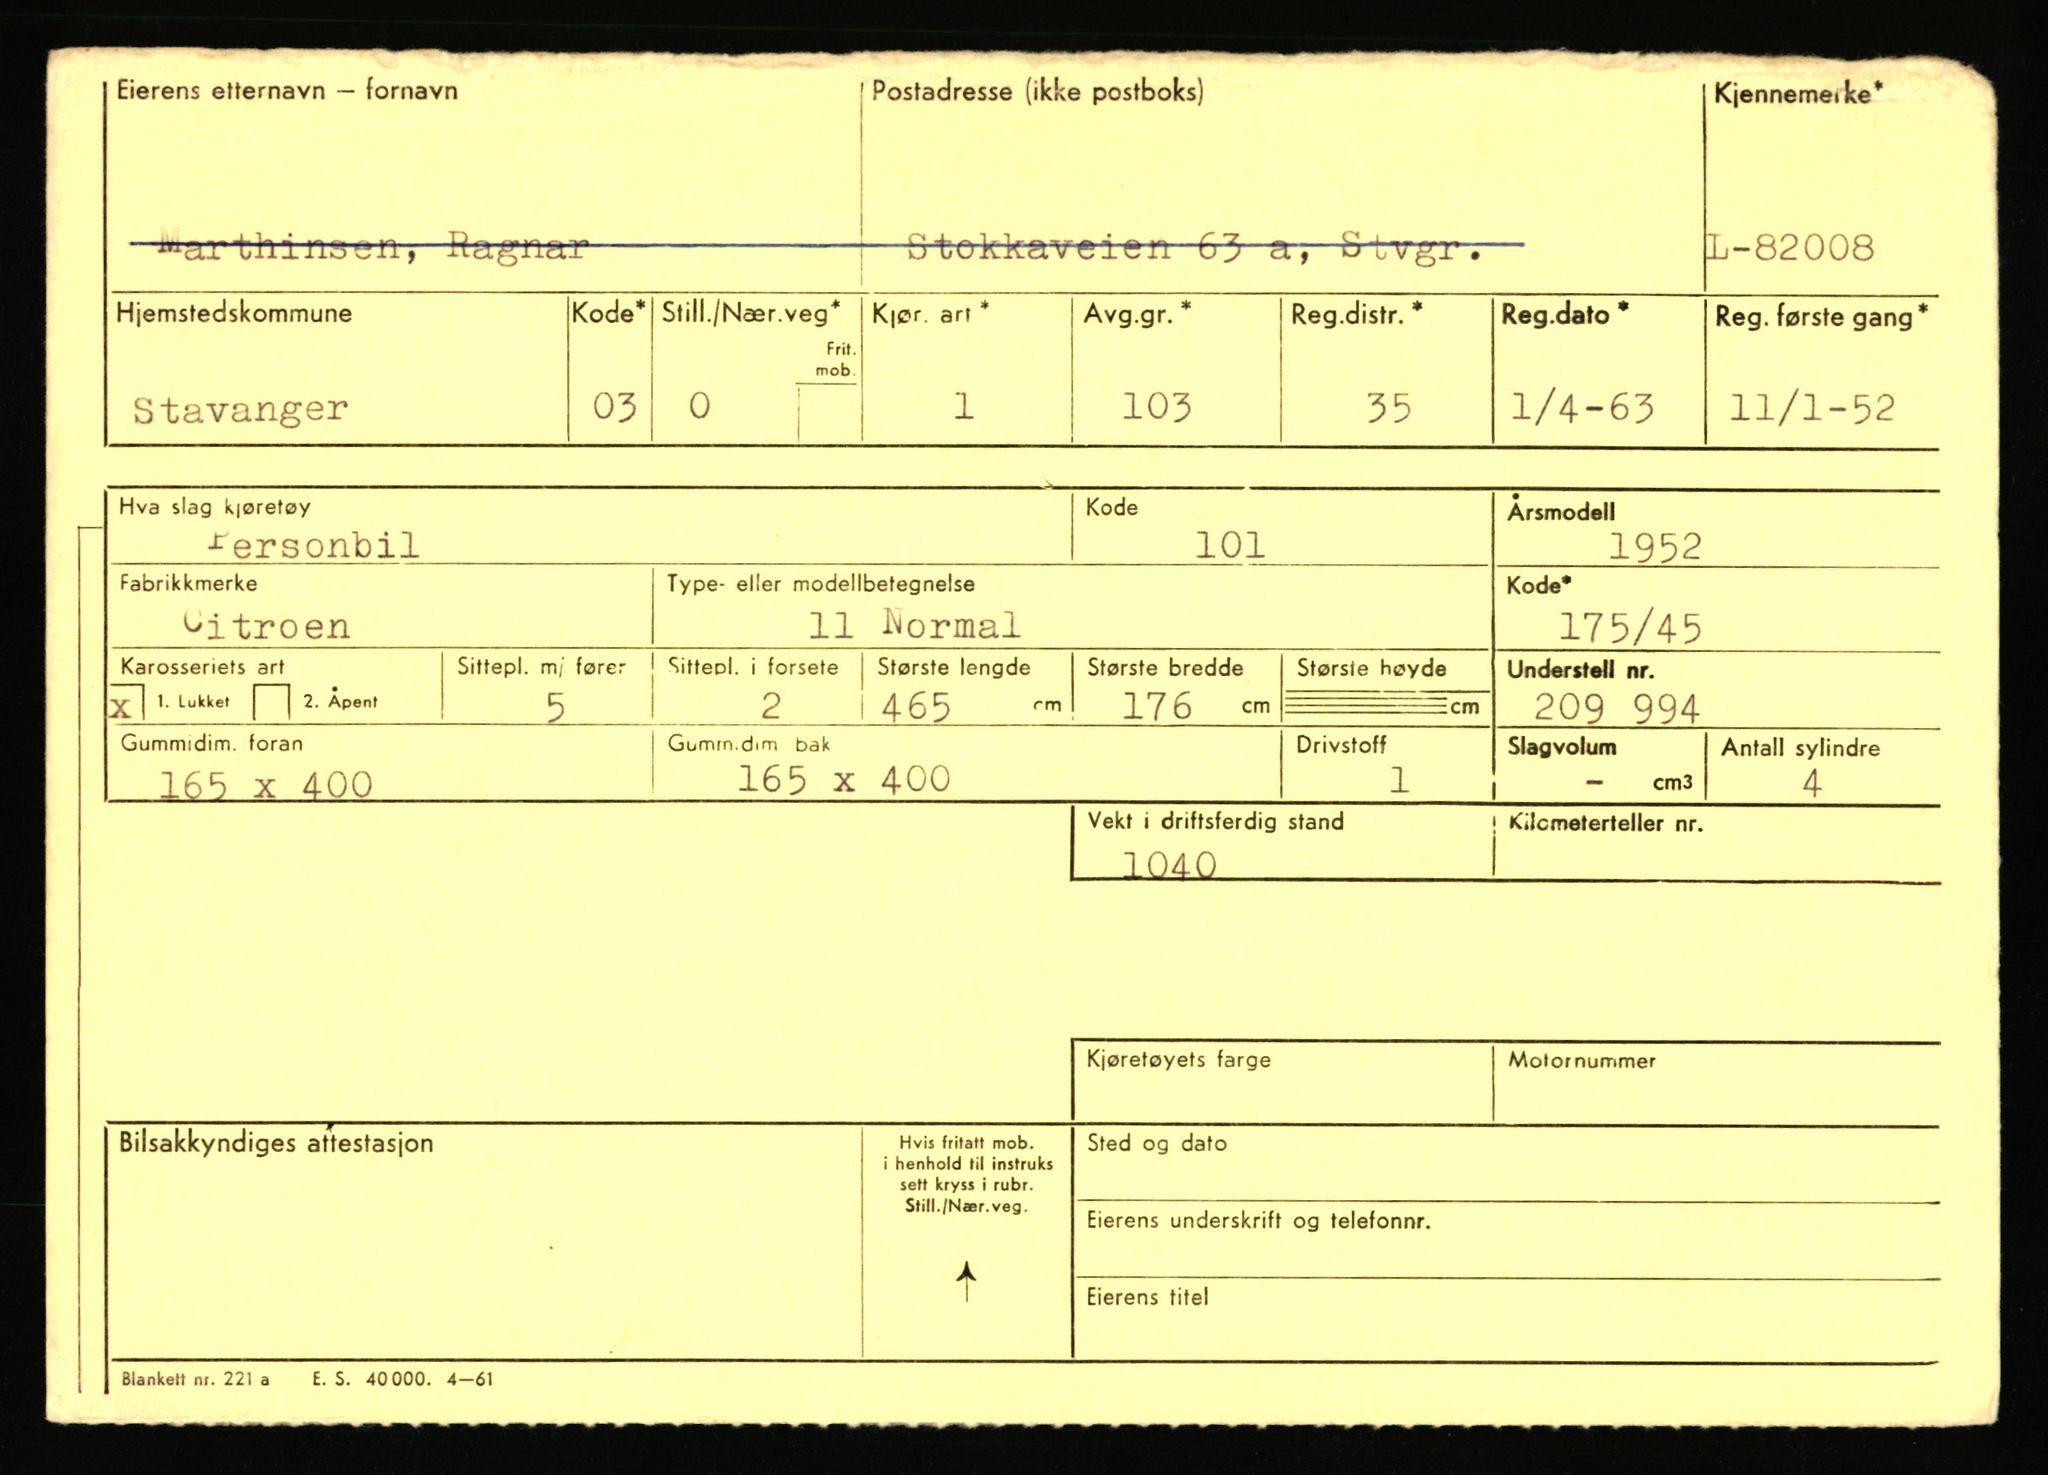 Eierens etternavn — fornavn Postadresse (ikke postboks) Kjennemerke*
Marthinsen, Ragnar Stokkaveien 63 a, Stvgr. L-82008
Hjemstedskommune Kode* Still./Nær.veg* Kjør. art * Avg.gr. * Reg.distr. * Reg.dato * Reg. første gang *
Frit.
mob.
Stavanger 03 0 1 103 35 1/4-63 11/1-52
Hva slag kjøretøy Kode Årsmodell
Personbil 101 1952
Fabrikkmerke Type- eller modellbetegnelse Kode*
Citroen 11 Normal 175/45
Karosseriets art Sittepl. m/ fører Sittepl. i forsete Største lengde Største bredde Største høyde Understell nr.
x 1. Lukket 2. Åpent 5 2 465 cm 176 cm cm 209 994
Gummidim. foran Gummidim bak Drivstoff Slagvolum Antall sylindre
165 x 400 165 x 400 1 - cm3 4
Vekt i driftsferdig stand Kilometerteller nr.
1040
Kjøretøyets farge Motornummer
Bilsakkyndiges attestasjon Hvis fritatt mob. Sted og dato
i henhold til instruks
sett kryss i rubr.
Still./Nær.veg.
Eierens underskrift og telefonnr.
Eierens titel
Blankett nr. 221 a E. S. 40 000. 4—61